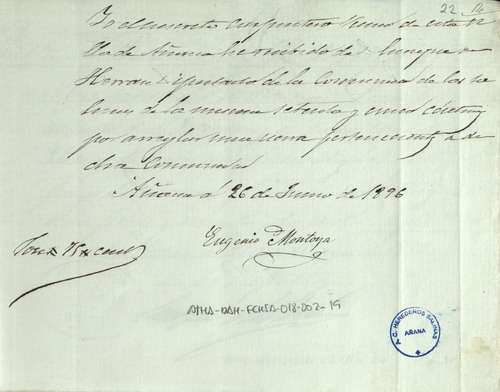 22 14
Yo el maestro Carpintero vecino de esta Vi
lla de Añana he recibido de Enrique
Herran Diputado de la Comunidad de las Sa
linas de la misma setenta y cinco céntimos
por arreglar una perteneciente a di
cha Comunidad
Añana á 26 de Junio de 1896
Eugenio Montoya
Son 75 cent
ATHA-DAH-FCHSA-018-002-19
A. C. HEREDEROS SALINAS
AÑANA